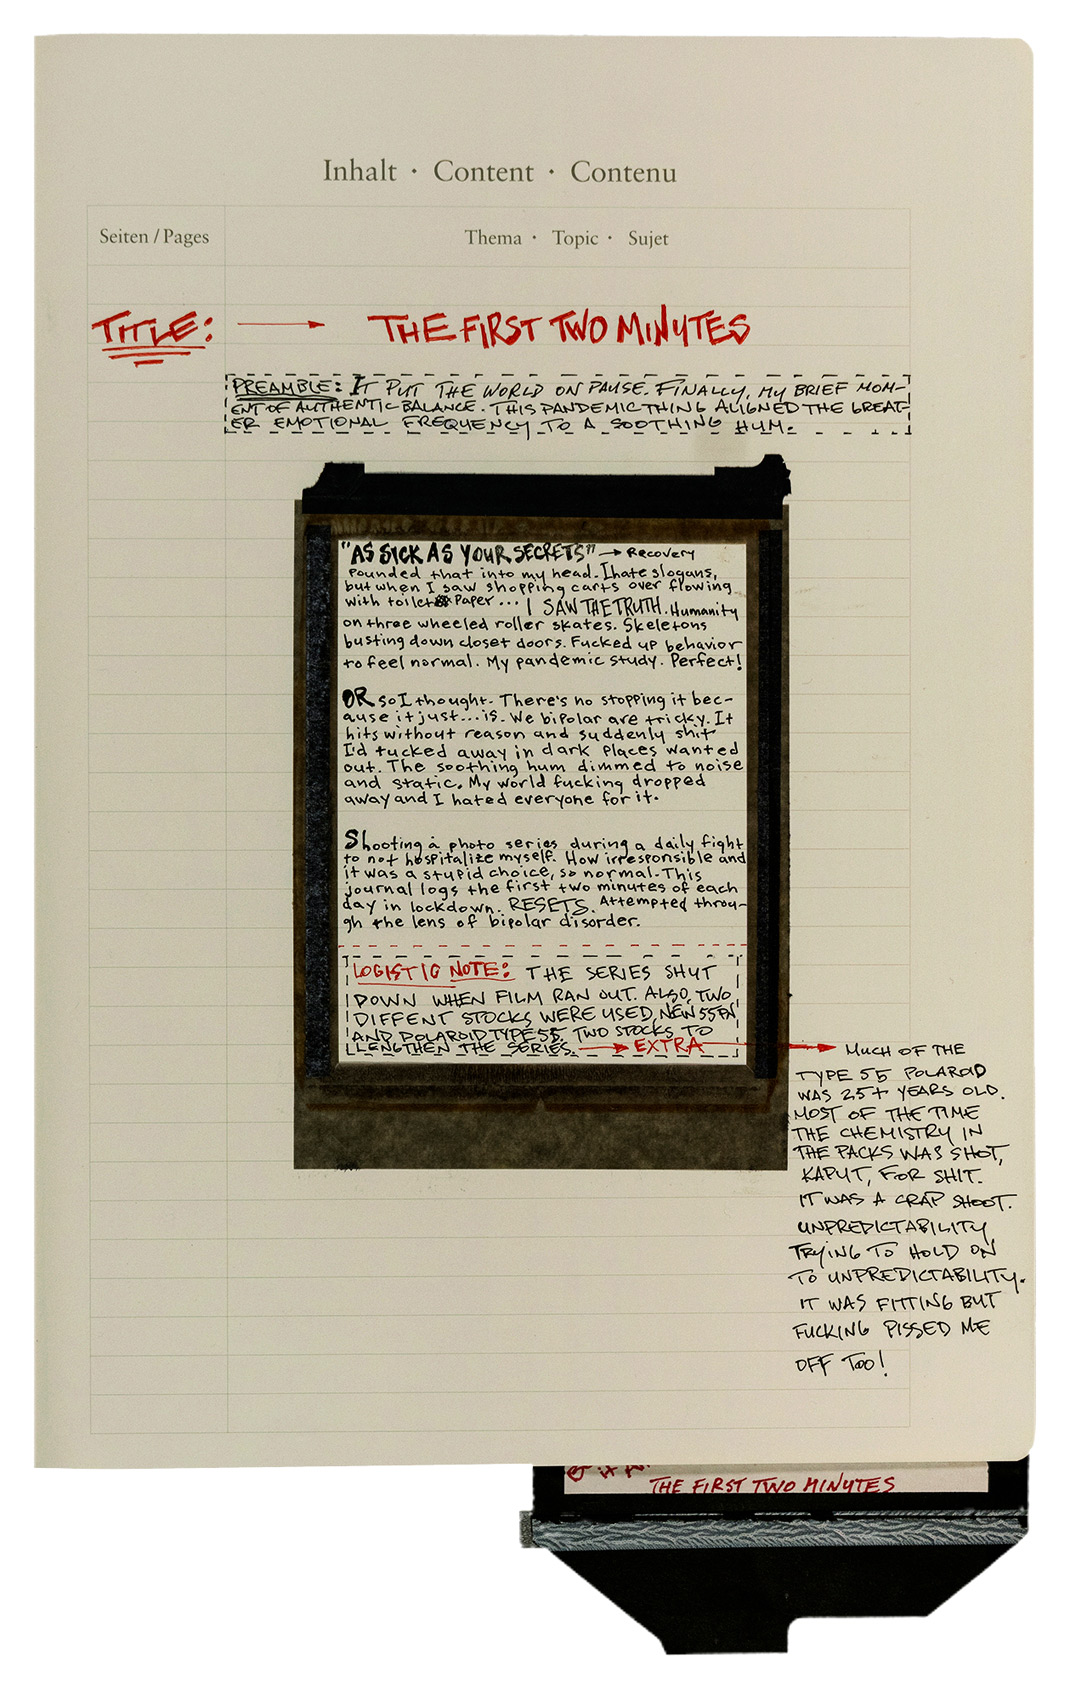 Inhalt · Content · Contenu
Seiten / Pages
Thema · Topic · Sujet
TITLE: → THE FIRST TWO MINUTES
PREAMBLE: IT PUT THE WORLD ON PAUSE. FINALLY, MY BRIEF MOM-
ENT OF AUTHENTIC BALANCE. THIS PANDEMIC THING ALIGNED THE GREAT-
ER EMOTIONAL FREQUENCY TO A SOOTHING HUM.
"AS SICK AS YOUR SECRETS" → Recovery
pounded that into my head. I hate slogans,
but when I saw shopping carts over flowing
with toilet Paper... I SAW THE TRUTH. Humanity
on three wheeled roller skates. Skeletons
busting down closet doors. Fucked up behavior
to feel normal. My pandemic study. Perfect!
OR so I thought. There's no stopping it bec-
ause it just...is. We bipolar are tricky. It
hits without reason and suddenly shit
I'd tucked away in dark places wanted
out. The soothing hum dimmed to noise
and static. My world fucking dropped
away and I hated everyone for it.
Shooting a photo series during a daily fight
to not hospitalize myself. How irresponsible and
it was a stupid choice, so normal. This
journal logs the first two minutes of each
day in lockdown. RESETS. Attempted throu-
gh the lens of bipolar disorder.
LOGISTIC NOTE: THE SERIES SHUT
DOWN WHEN FILM RAN OUT. ALSO, TWO
DIFFENT STOCKS WERE USED, NEW55PN
AND POLAROID TYPE 55. TWO STOCKS TO
LLENGTHEN THE SERIES. → EXTRA →
MUCH OF THE
TYPE 55 POLAROID
WAS 25+ YEARS OLD.
MOST OF THE TIME
THE CHEMISTRY IN
THE PACKS WAS SHOT,
KAPUT, FOR SHIT.
IT WAS A CRAP SHOOT.
UNPREDICTABILITY
TRYING TO HOLD ON
TO UNPREDICTABILITY.
IT WAS FITTING BUT
FUCKING PISSED ME
OFF TOO!
THE FIRST TWO MINUTES